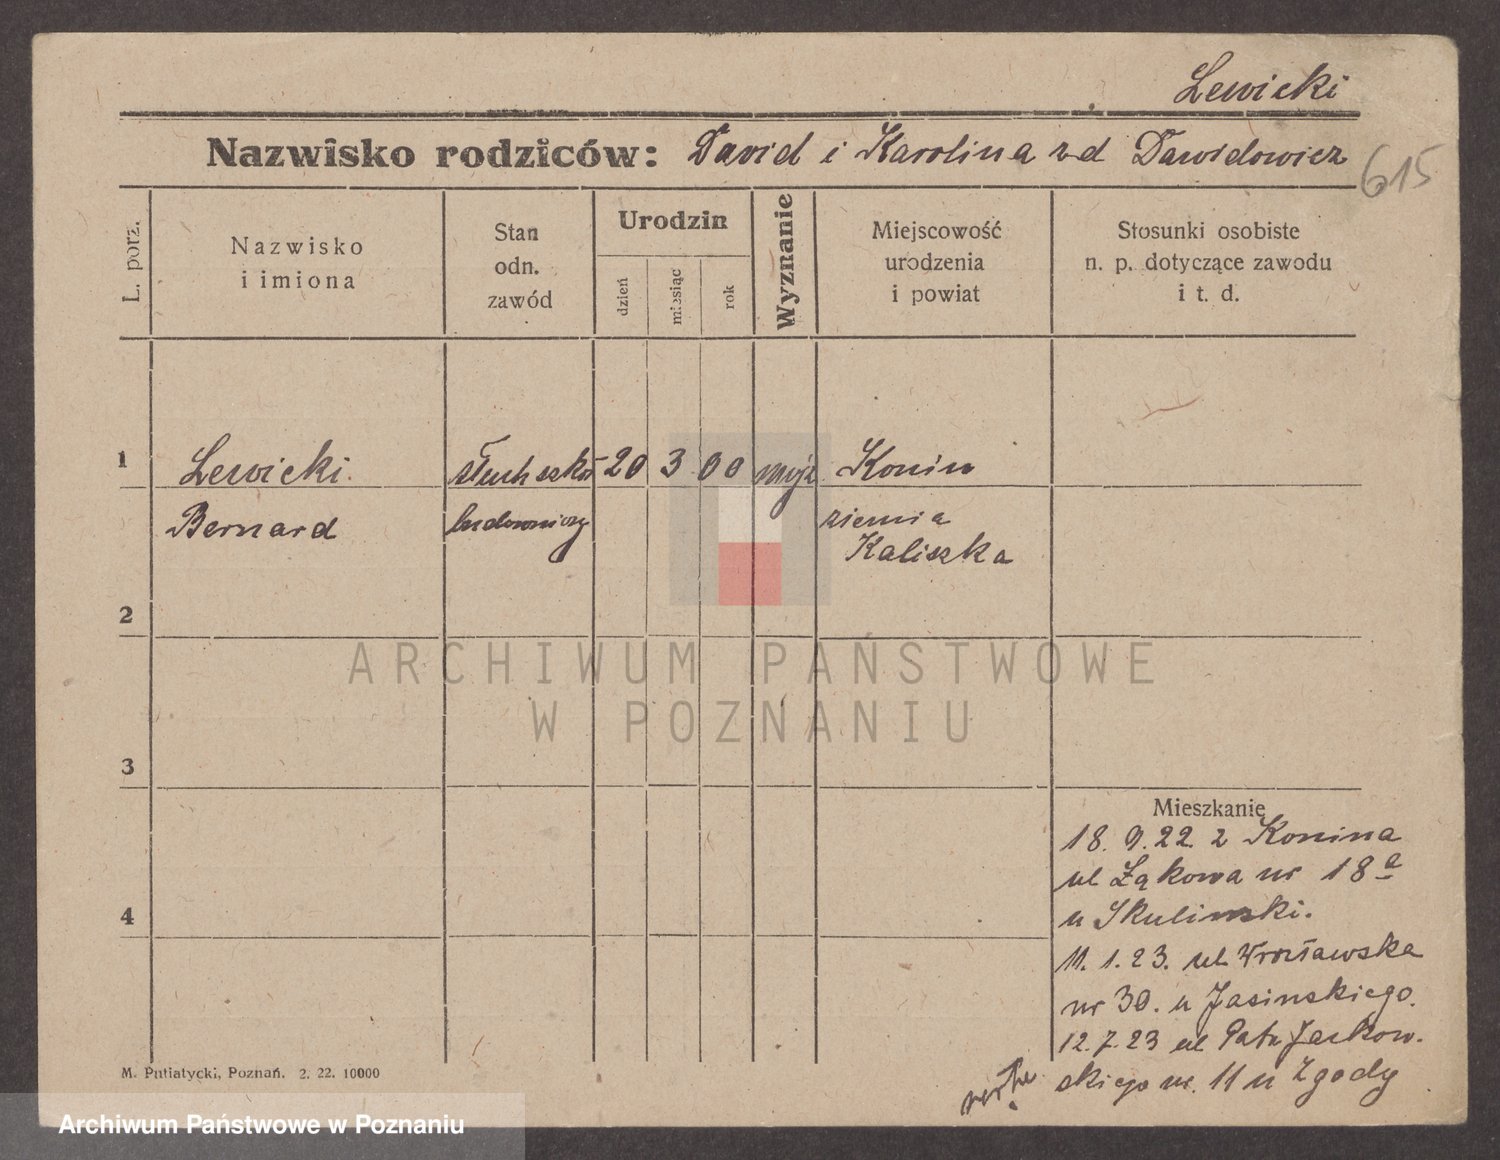 Lewicki
Nazwisko rodziców: David i Karolina zd Dawidowicz
615
L. porz.
Nazwisko
i imiona
Stan
odn.
zawód
Urodzin
dzień
miesiąc
rok
Wyznanie
Miejscowość
urodzenia
i powiat
Stosunki osobiste
n. p. dotyczące zawodu
i t. d.
1
Lewicki
Bernard
słuch szkół
budowniczy
20 3 00
mojż
Konin
ziemia
Kaliszka
2
3
4
Mieszkanie
18. 9. 22 z Konina
ul Łąkowa nr 18a
u Skulimski.
11. 1. 23. ul Wrocławska
nr 30. u Jasinskiego.
12. 7. 23 ul Patr Jackow.
skiego nr. 11 u Zgody
M. Putiatycki, Poznań. 2. 22. 10000
ARCHIWUM PAŃSTWOWE
W POZNANIU
Archiwum Państwowe w Poznaniu